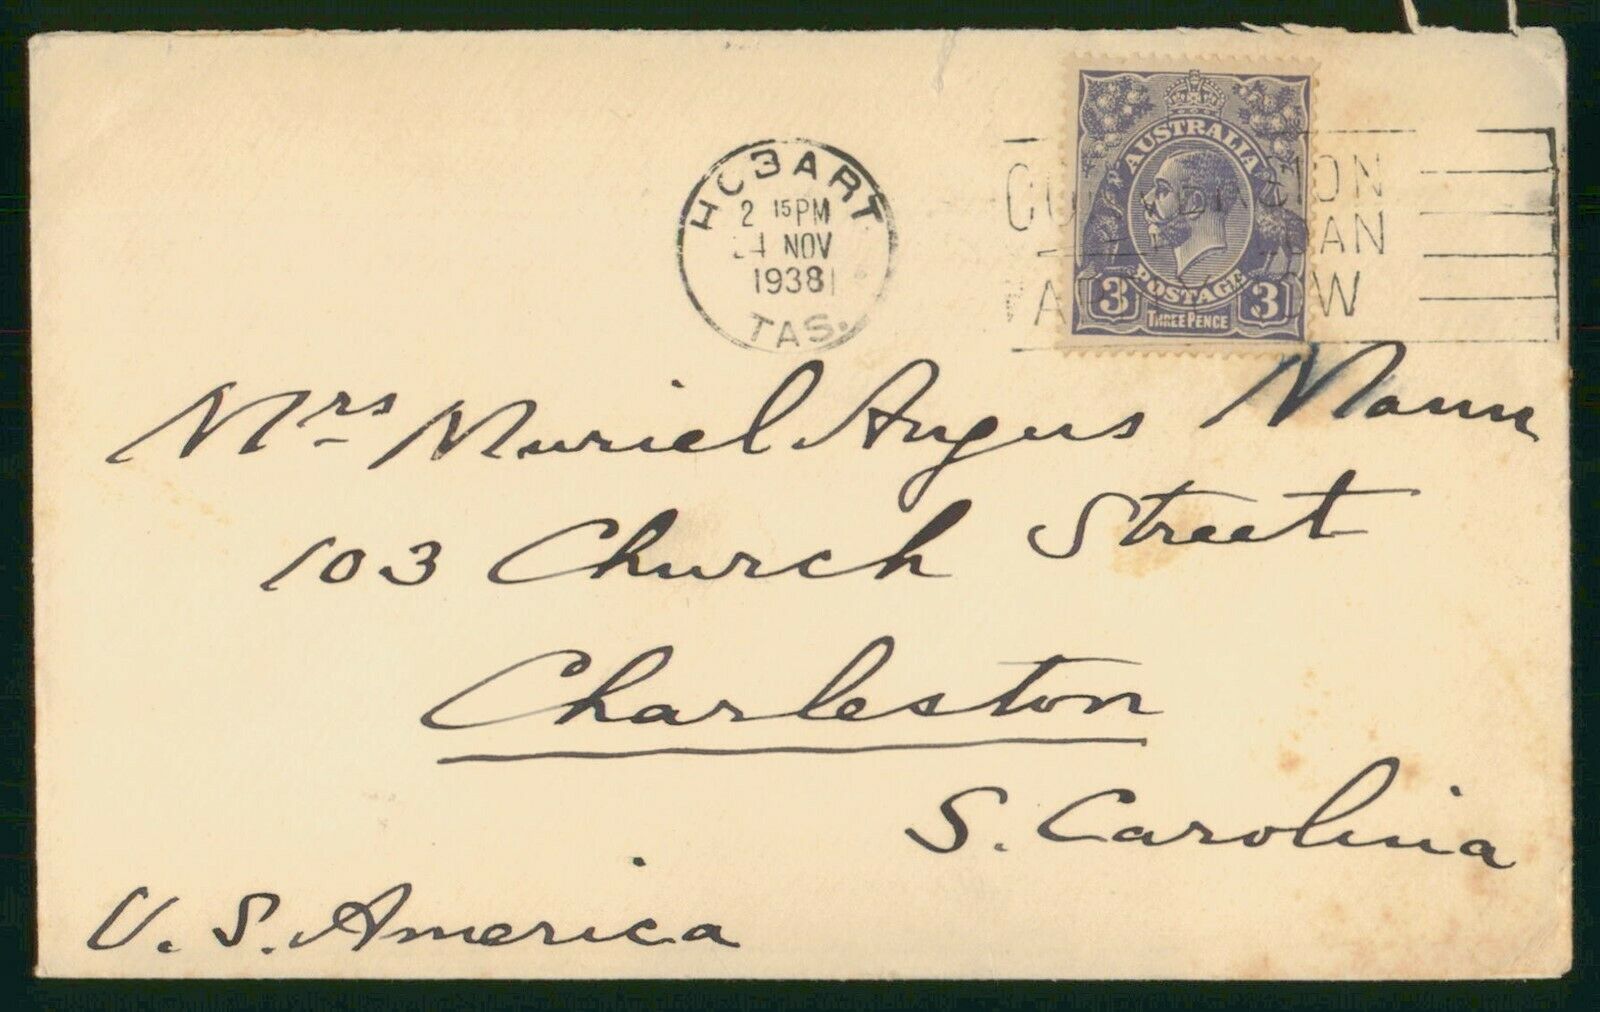 HOBART
2 15PM
NOV
1938
TAS.
AUSTRALIA
POSTAGE
3 3
THREE PENCE
Mrs Muriel Angus Mann
103 Church Street
Charleston
S. Carolina
U. S. America